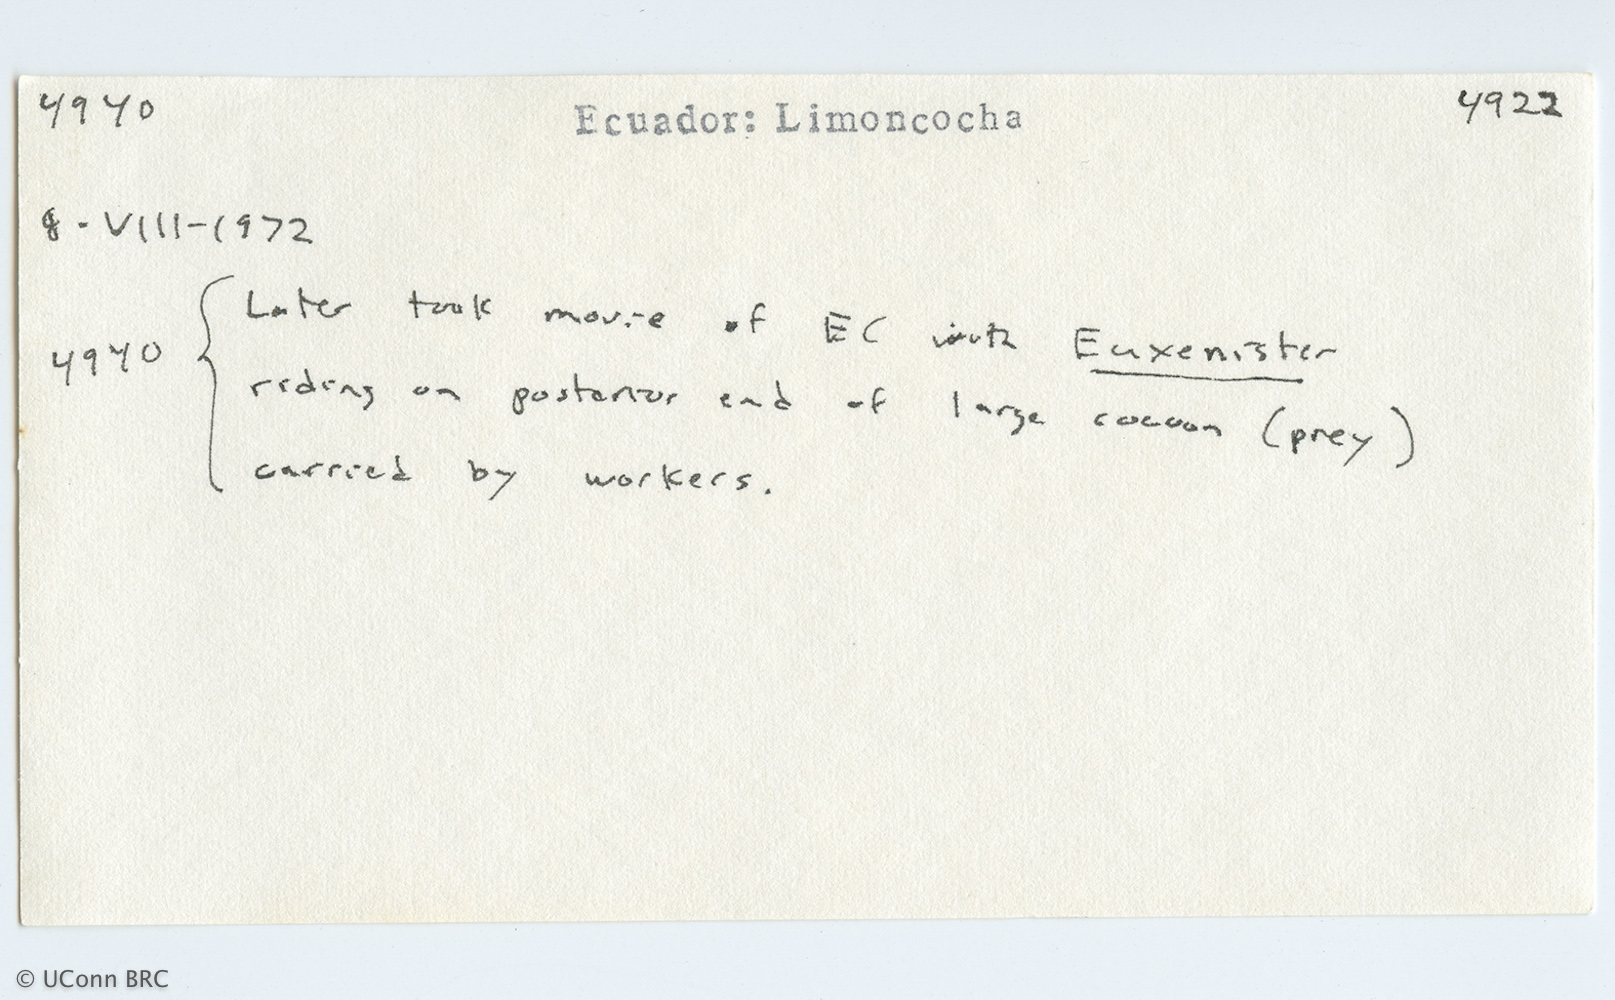 4940 Ecuador: Limoncocha 4922
8-VIII-1972
Later took movie of EC with Euxenister
4940 riding on posterior end of large cocoon (prey)
carried by workers.
© UConn BRC